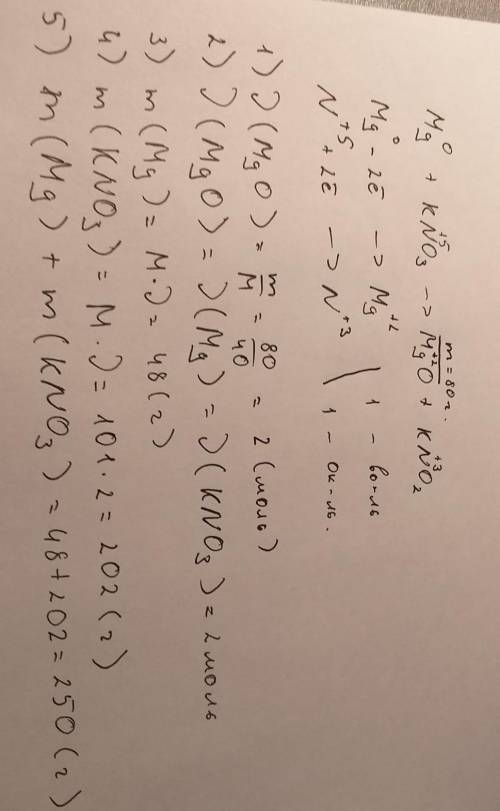 m = 80г.
Mg⁰ + KN⁺⁵O₃ —> Mg⁺²O + KN⁺³O₂
Mg⁰ - 2ē —> Mg⁺² | 1 - вос-ль
N⁺⁵ + 2ē —> N⁺³ | 1 - ок-ль.
1) ν(MgO) = m/M = 80/40 = 2 (моль)
2) ν(MgO) = ν(Mg) = ν(KNO₃) = 2 моль
3) m(Mg) = M·ν = 48 (г)
4) m(KNO₃) = M·ν = 101·2 = 202 (г)
5) m(Mg) + m(KNO₃) = 48+202 = 250 (г)